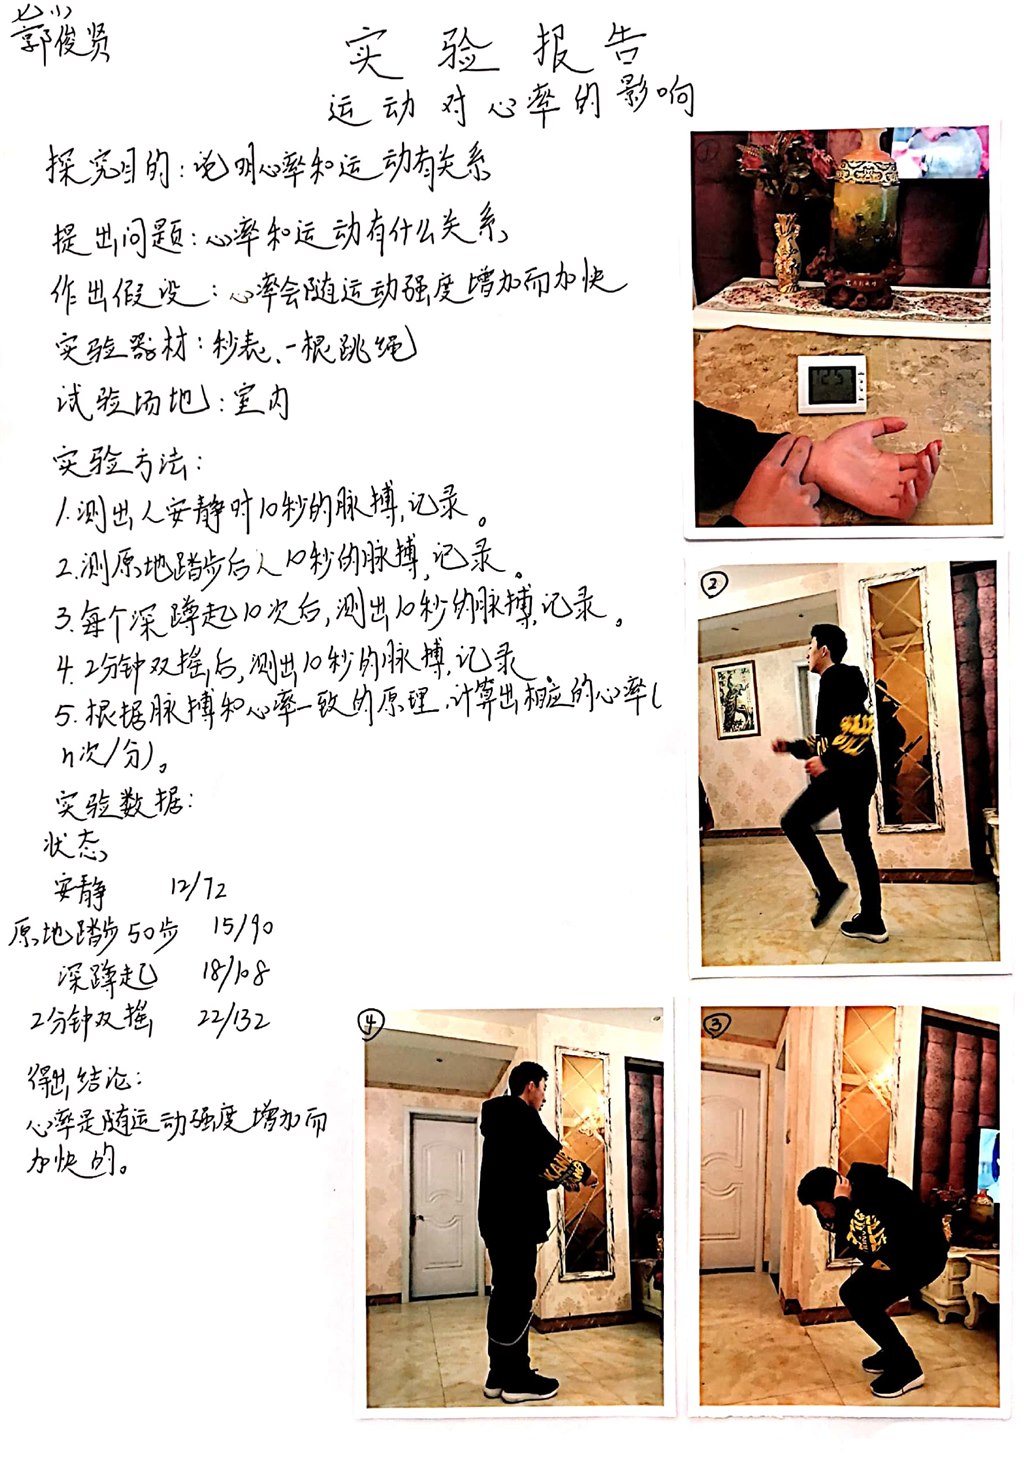 七小
郭俊贤
实验报告
运动对心率的影响
探究目的:说明心率和运动有关系
提出问题:心率和运动有什么关系
作出假设:心率会随运动强度增加而加快
实验器材:秒表、一根跳绳
试验场地:室内
实验方法:
1.测出人安静时10秒的脉搏,记录。
2.测原地踏步后人10秒的脉搏,记录。
3.每个深蹲起10次后,测出10秒的脉搏,记录。
4.2分钟双摇后,测出10秒的脉搏,记录
5.根据脉搏和心率一致的原理,计算出相应的心率(
n次/分)。
实验数据:
状态
安静 12/72
原地踏步50步 15/90
深蹲起 18/108
2分钟双摇 22/132
得出结论:
心率是随运动强度增加而
加快的。
①
②
④
③